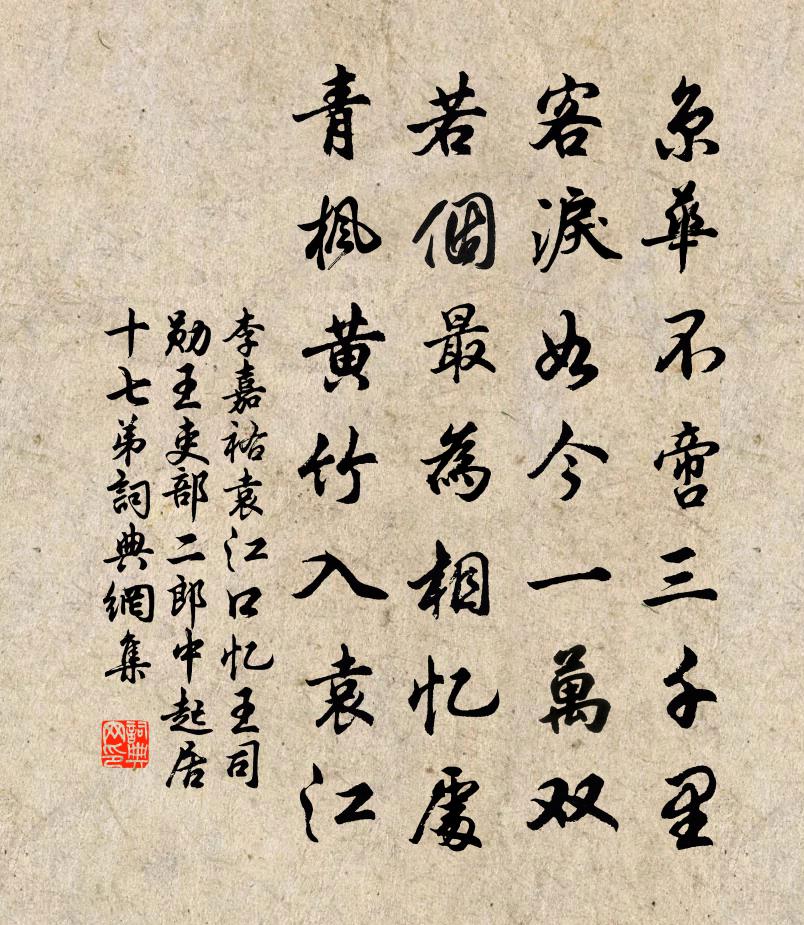 京華不啻三千里
客淚如今一萬双
若個最為相忆處
青楓黄竹入袁江
李嘉祐袁江口忆王司
勋王吏部二郎中起居
十七弟詞典網集
詞典網印